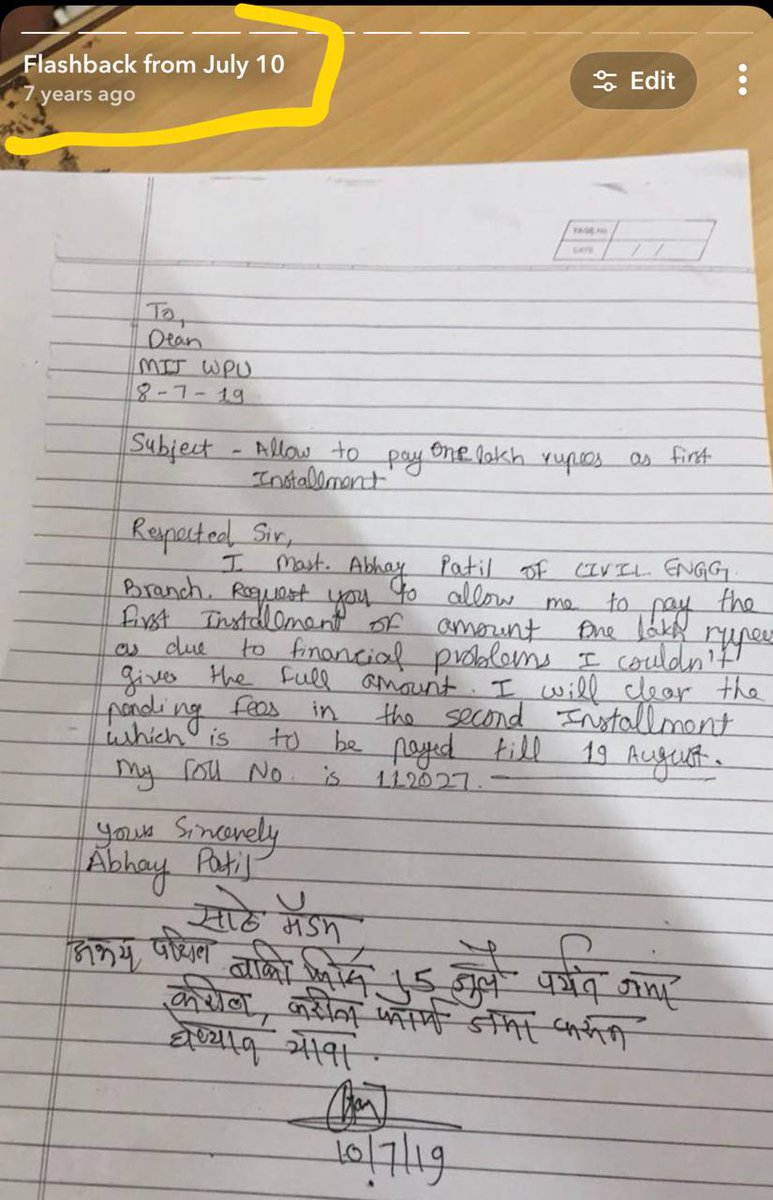 Flashback from July 10
7 years ago
Edit
PAGE No.
DATE / /
To,
Dean
MIT WPU
8-7-19
Subject - Allow to pay one lakh rupees as first
Installment
Respected Sir,
I Mast. Abhay Patil of CIVIL ENGG.
Branch. Request you to allow me to pay the
first Installment of amount one lakh rupees
as due to financial problems I couldn't
give the full amount. I will clear the
pending fees in the second Installment
which is to be payed till 19 August.
My Roll No. is 112027.
yours Sincerely
Abhay Patil
साठे मॅडम
अभय पाटिल बाकी 15 जुलै पर्यंत जमा
करील, करील फॉर्म जमा करून
घेण्यात यावा.
10/7/19